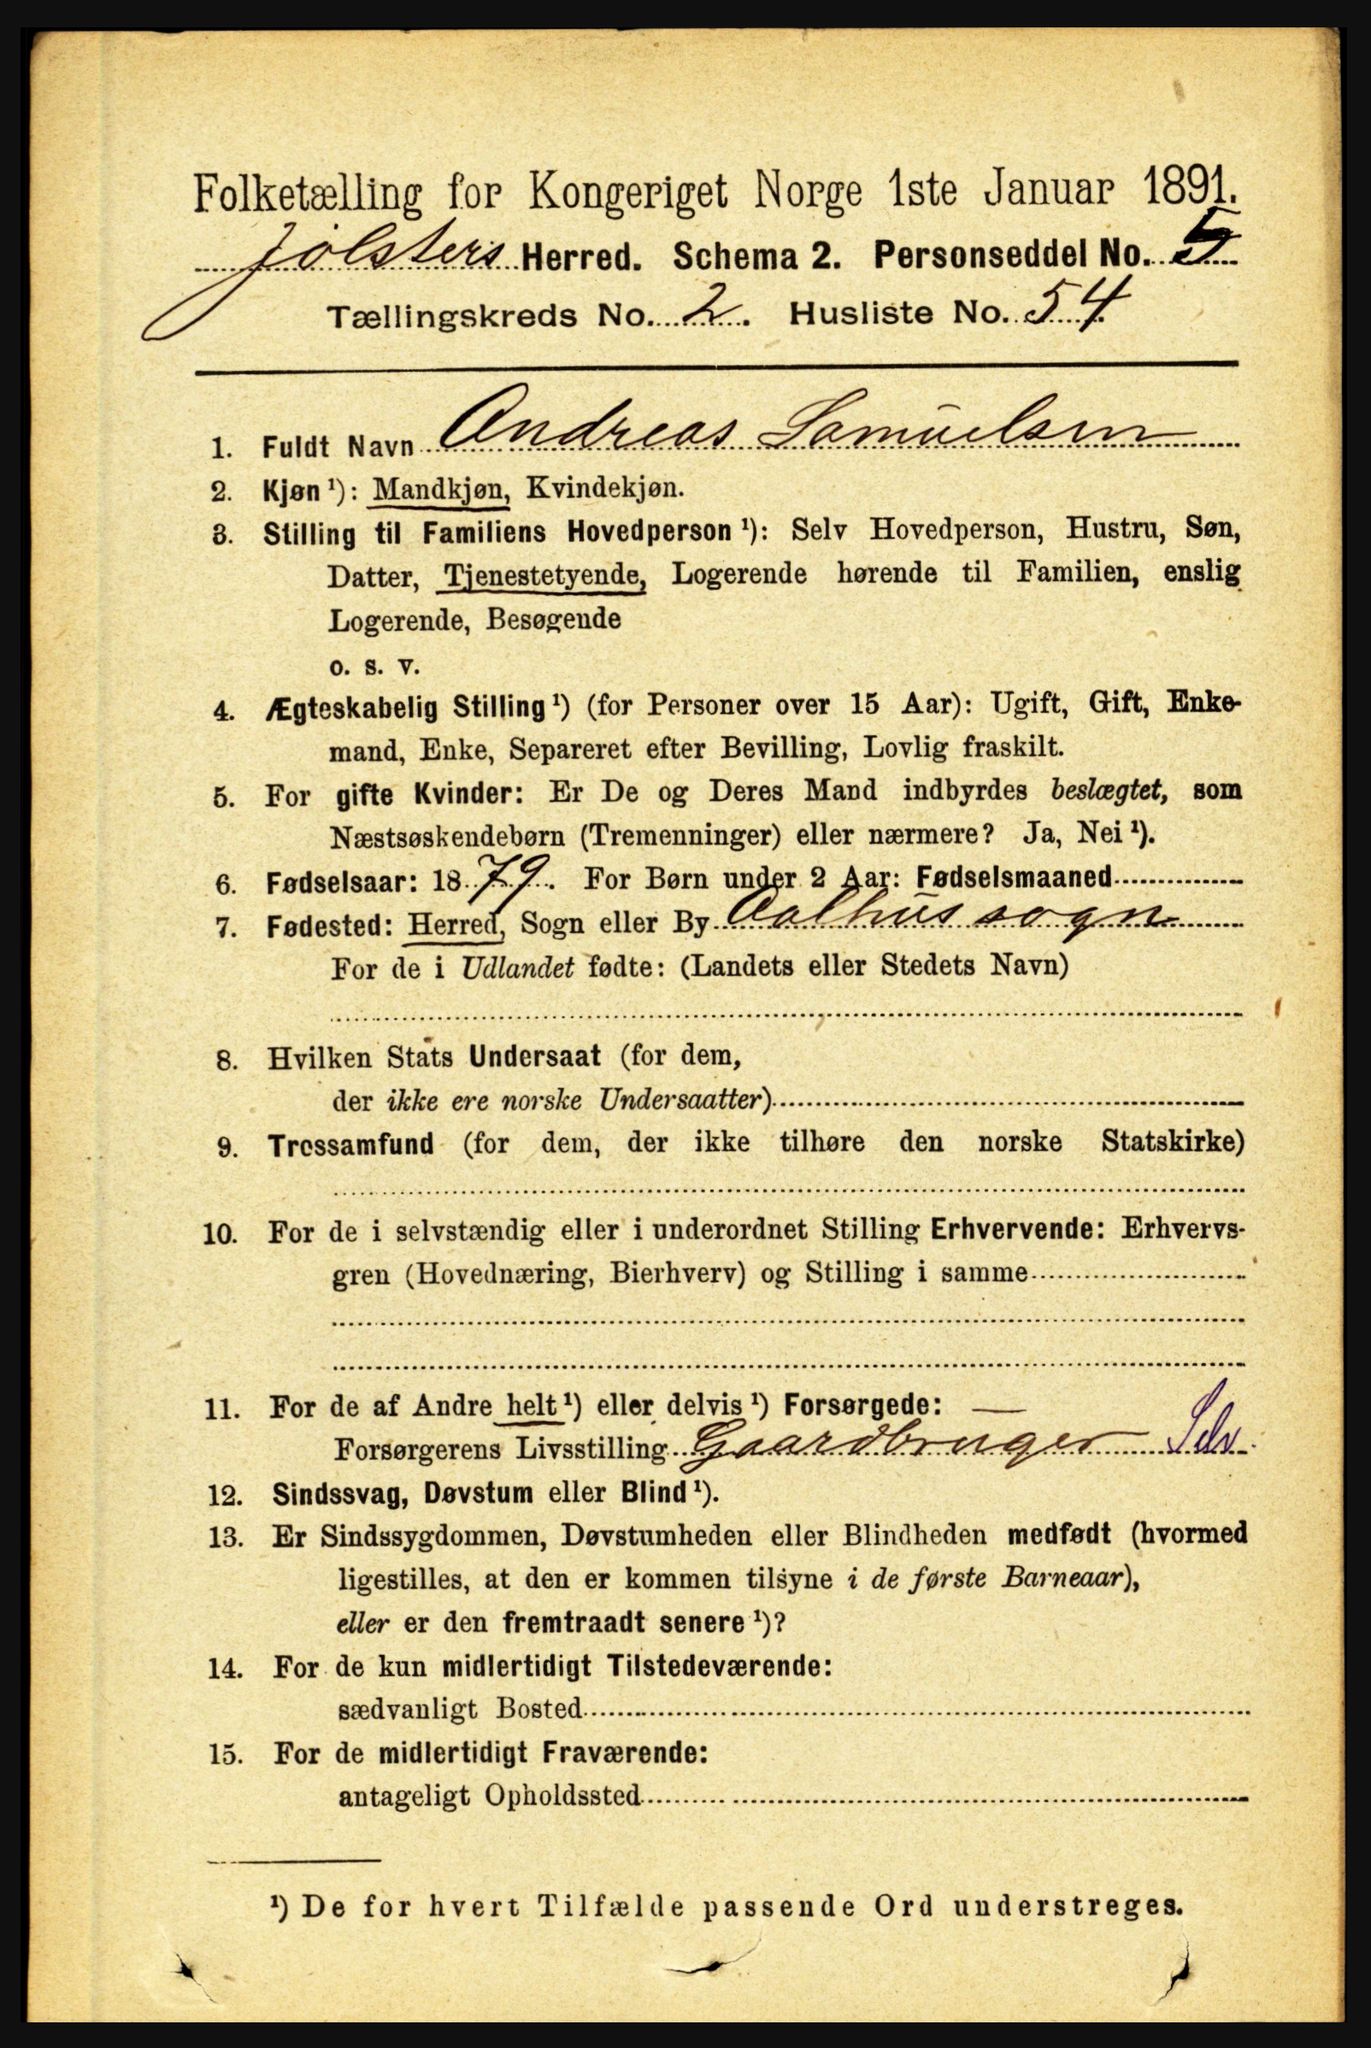 Folketælling for Kongeriget Norge 1ste Januar 1891.
Jølsters Herred. Schema 2. Personseddel No. 5
Tællingskreds No. 2. Husliste No. 54
1. Fuldt Navn Andreas Samuelsen
2. Kjøn¹): Mandkjøn, Kvindekjøn.
3. Stilling til Familiens Hovedperson¹): Selv Hovedperson, Hustru, Søn,
Datter, Tjenestetyende, Logerende hørende til Familien, enslig
Logerende, Besøgende
o. s. v.
4. Ægteskabelig Stilling¹) (for Personer over 15 Aar): Ugift, Gift, Enke-
mand, Enke, Separeret efter Bevilling, Lovlig fraskilt.
5. For gifte Kvinder: Er De og Deres Mand indbyrdes beslægtet, som
Næstsøskendebørn (Tremenninger) eller nærmere? Ja, Nei¹).
6. Fødselsaar: 1879. For Børn under 2 Aar: Fødselsmaaned
7. Fødested: Herred, Sogn eller By Aalhus sogn
For de i Udlandet fødte: (Landets eller Stedets Navn)
8. Hvilken Stats Undersaat (for dem,
der ikke ere norske Undersaatter)
9. Trossamfund (for dem, der ikke tilhøre den norske Statskirke)
10. For de i selvstændig eller i underordnet Stilling Erhvervende: Erhvervs-
gren (Hovednæring, Bierhverv) og Stilling i samme
11. For de af Andre helt¹) eller delvis¹) Forsørgede: —
Forsørgerens Livsstilling Gaardbruger Selv.
12. Sindssvag, Døvstum eller Blind¹).
13. Er Sindssygdommen, Døvstumheden eller Blindheden medfødt (hvormed
ligestilles, at den er kommen tilsyne i de første Barneaar),
eller er den fremtraadt senere¹)?
14. For de kun midlertidigt Tilstedeværende:
sædvanligt Bosted
15. For de midlertidigt Fraværende:
antageligt Opholdssted
¹) De for hvert Tilfælde passende Ord understreges.